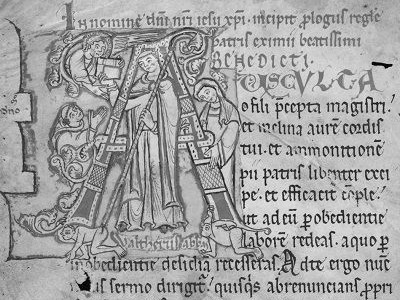 In nomine dn̄i nr̄i iesu xp̄i. incipit p̄logus regłe
patris eximii beatissimi
BENEDICTI.
AUSCULTA
o fili p̄cepta magistri.
et inclina aurē cordis
tui. et ammonitionē
pii patris libenter exci
pe. et efficacit̄ cōple.
ut ad eū p̄ obedientie
laborē redeas. a quo p̄
inobedientie desidiā recesseras. Ad te ergo nunc
sermo dirigit̄. quisq̄s abrenuncians p̄pri
Waltherius abba